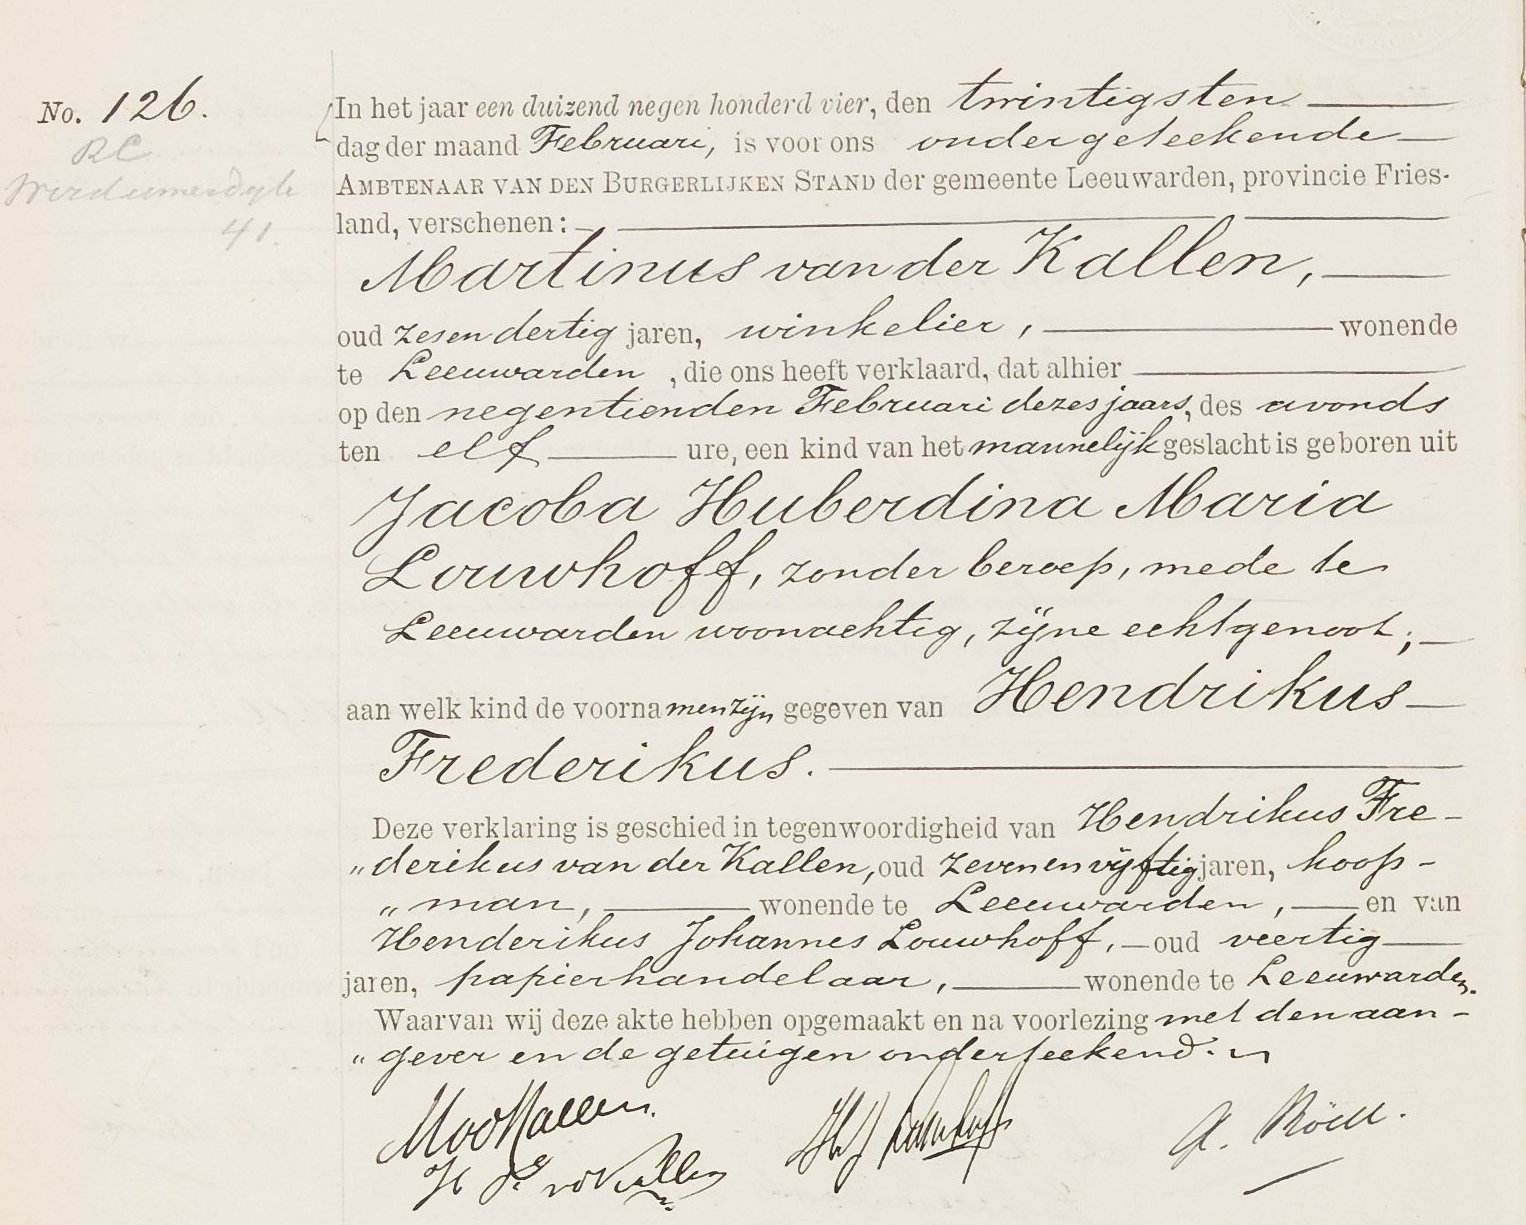 No. 126.
RC
Wirdumerdyk
41.
In het jaar een duizend negen honderd vier, den twintigsten
dag der maand Februari, is voor ons ondergeteekende
AMBTENAAR VAN DEN BURGERLIJKEN STAND der gemeente Leeuwarden, provincie Fries-
land, verschenen:
Martinus van der Kallen,
oud zesendertig jaren, winkelier, wonende
te Leeuwarden, die ons heeft verklaard, dat alhier
op den negentienden Februari dezes jaars, des avonds
ten elf ure, een kind van het mannelijk geslacht is geboren uit
Jacoba Huberdina Maria
Louwhoff, zonder beroep, mede te
Leeuwarden woonachtig, zijne echtgenoot;
aan welk kind de voornamen zijn gegeven van Hendrikus
Frederikus.
Deze verklaring is geschied in tegenwoordigheid van Hendrikus Fre-
„derikus van der Kallen, oud zevenenvijftig jaren, koop-
„man, wonende te Leeuwarden, en van
Henderikus Johannes Louwhoff, oud veertig
jaren, papierhandelaar, wonende te Leeuwarden.
Waarvan wij deze akte hebben opgemaakt en na voorlezing met den aan-
„gever en de getuigen onderteekend.
MvdKallen.
H F vd Kallen
HJ Louwhoff
A. Röell.